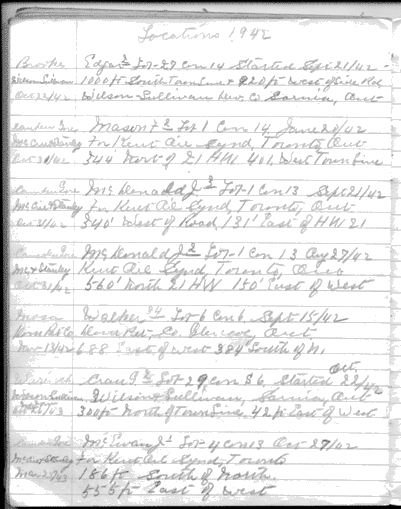 Locations 1942
Brooke Edgar Lot 29 Con 14 Started Sept 21/42
1000 ft South Town Line & 920 ft West of Side Rd
Oct 22/42 Wilson-Sullivan Dev. Co Sarnia, Ont
Camden Gore Mason #2 Lot 1 Con 14 June 20/42
for Kent Oil Synd, Toronto, Ont
344 North of 21 HW 401, West Town Line
Camden Gore McDonald J 3 Lot-1 Con 13 Sept 21/42
for Kent Oil Synd, Toronto, Ont
Oct 31/42 340' West of Road, 131' East of HW 21
Camden Gore McDonald J 2 Lot-1 Con 13 Aug 27/42
Kent Oil Synd Toronto, Ont
Oct 31/42 560' North 21 HW 150' East of West
Mosa Walker Lot 6 Con 6 Sept 15/42
Co, Glencoe, Ont
Nov 13/42 688 East of West 384' South of N.
Oct.
Lot 29 Con 6, Started 22/42
Wilson Sullivan, Wilson & Sullivan, Sarnia, Ont
300 ft North of Town Line, 42 ft East of West
McEwan Lot 4 Con 13 Oct 27/42
for Kent Oil Synd Toronto
186 ft South of North
555 ft East of West